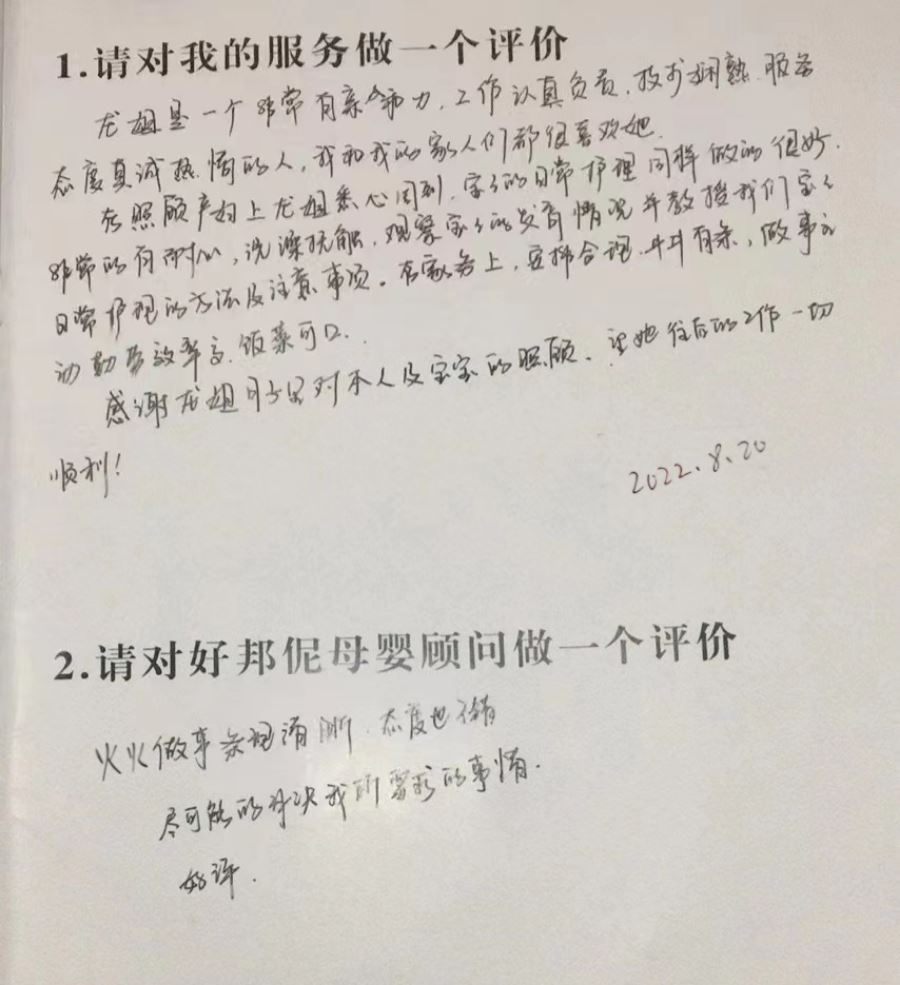 1.请对我的服务做一个评价
龙姐是一个非常有亲和力,工作认真负责,技术娴熟,服务
态度真诚热情的人,我和我的家人们都很喜欢她.
在照顾产妇上龙姐悉心周到,宝宝的日常护理同样做的很好.
非常的有耐心,洗澡抚触,观察宝宝的发育情况并教授我们宝宝
日常护理的方法及注意事项。在家务上,安排合理,井井有条,做事主
动勤劳效率高.饭菜可口.
感谢龙姐月子里对本人及宝宝的照顾.望她往后的工作一切
顺利!
2022.8.20
2.请对好邦伲母婴顾问做一个评价
火火做事条理清晰.态度也不错
尽可能的解决我所需求的事情.
好评.